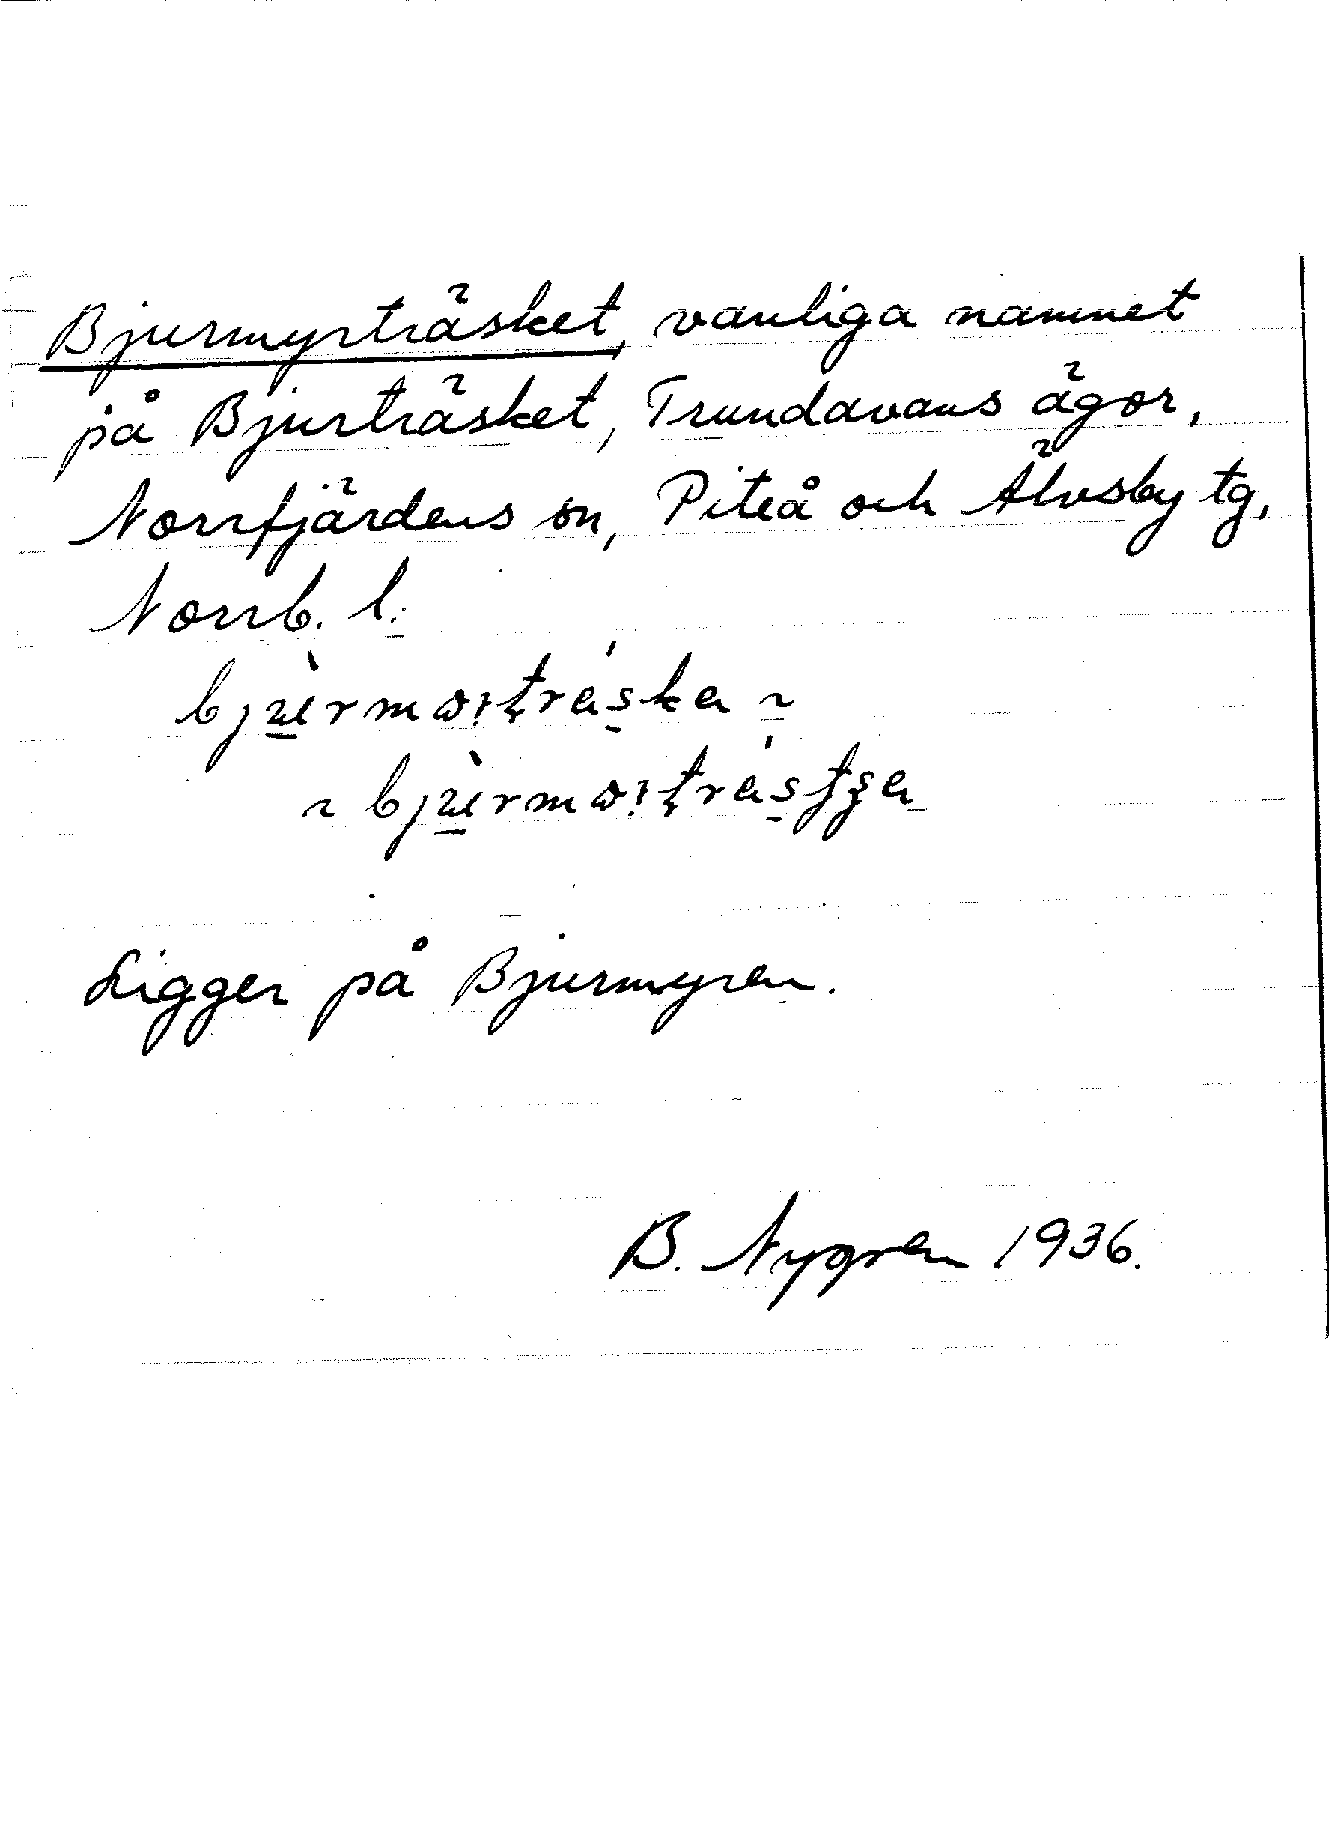 Bjurmyrträsket, vanliga namnet
på Bjurträsket, Trundavans ägor,
Norrfjärdens sn, Piteå och Älvsby tg,
Norrb. l.
Ligger på Bjurmyren.
B. Nygren 1936.